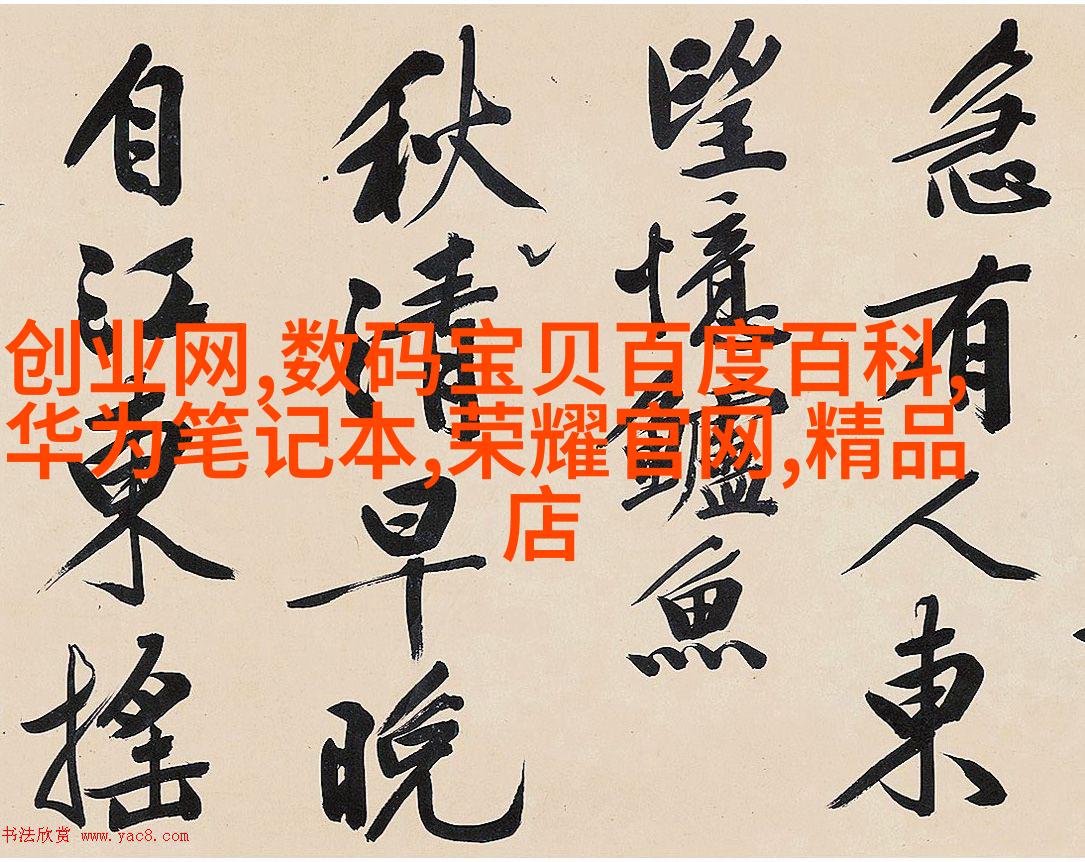 急有人東
望憶鱸魚
秋清早晚
自江東搖
创业网,数码宝贝百度百科,
华为笔记本,荣耀官网,精品
店
书法欣赏 www.yac8.com